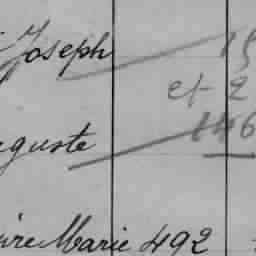 Joseph 15
et 2
guste 146
ire Marie 492